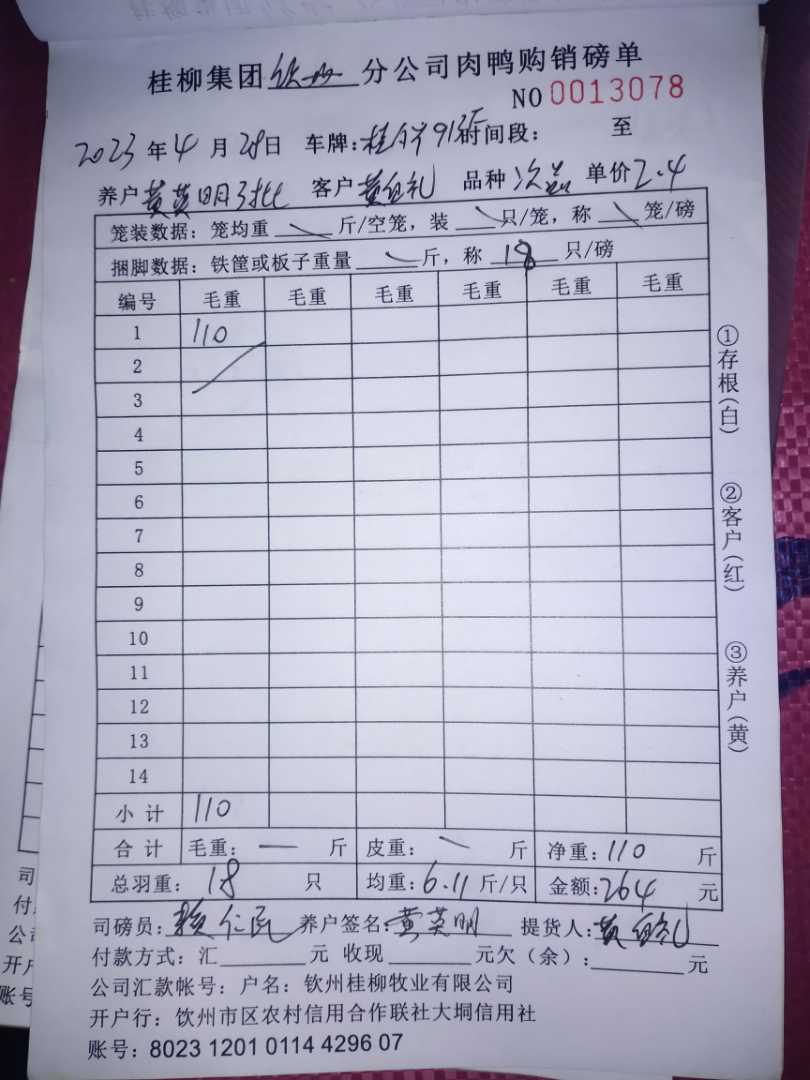 桂柳集团钦州分公司肉鸭购销磅单
NO 0013078
2023年4月28日 车牌:桂 913 时间段: 至
养户黄英明3批 客户黄 礼 品种次品 单价2.4
笼装数据: 笼均重 \ 斤/空笼, 装 \ 只/笼, 称 \ 笼/磅
捆脚数据: 铁筐或板子重量 \ 斤, 称 18 只/磅
编号 毛重 毛重 毛重 毛重 毛重 毛重
1 110
2
3
4
5
6
7
8
9
10
11
12
13
14
小计 110
合计 毛重: — 斤 皮重: \ 斤 净重: 110 斤
总羽重: 18 只 均重: 6.11 斤/只 金额: 264 元
司磅员: 仁民 养户签名: 黄英明 提货人: 黄 礼
付款方式: 汇 元 收现 元欠(余): 元
公司汇款帐号: 户名: 钦州桂柳牧业有限公司
开户行: 钦州市区农村信用合作联社大垌信用社
账号: 8023 1201 0114 4296 07
①存根(白)
②客户(红)
③养户(黄)
司
付
公司
开户
账号